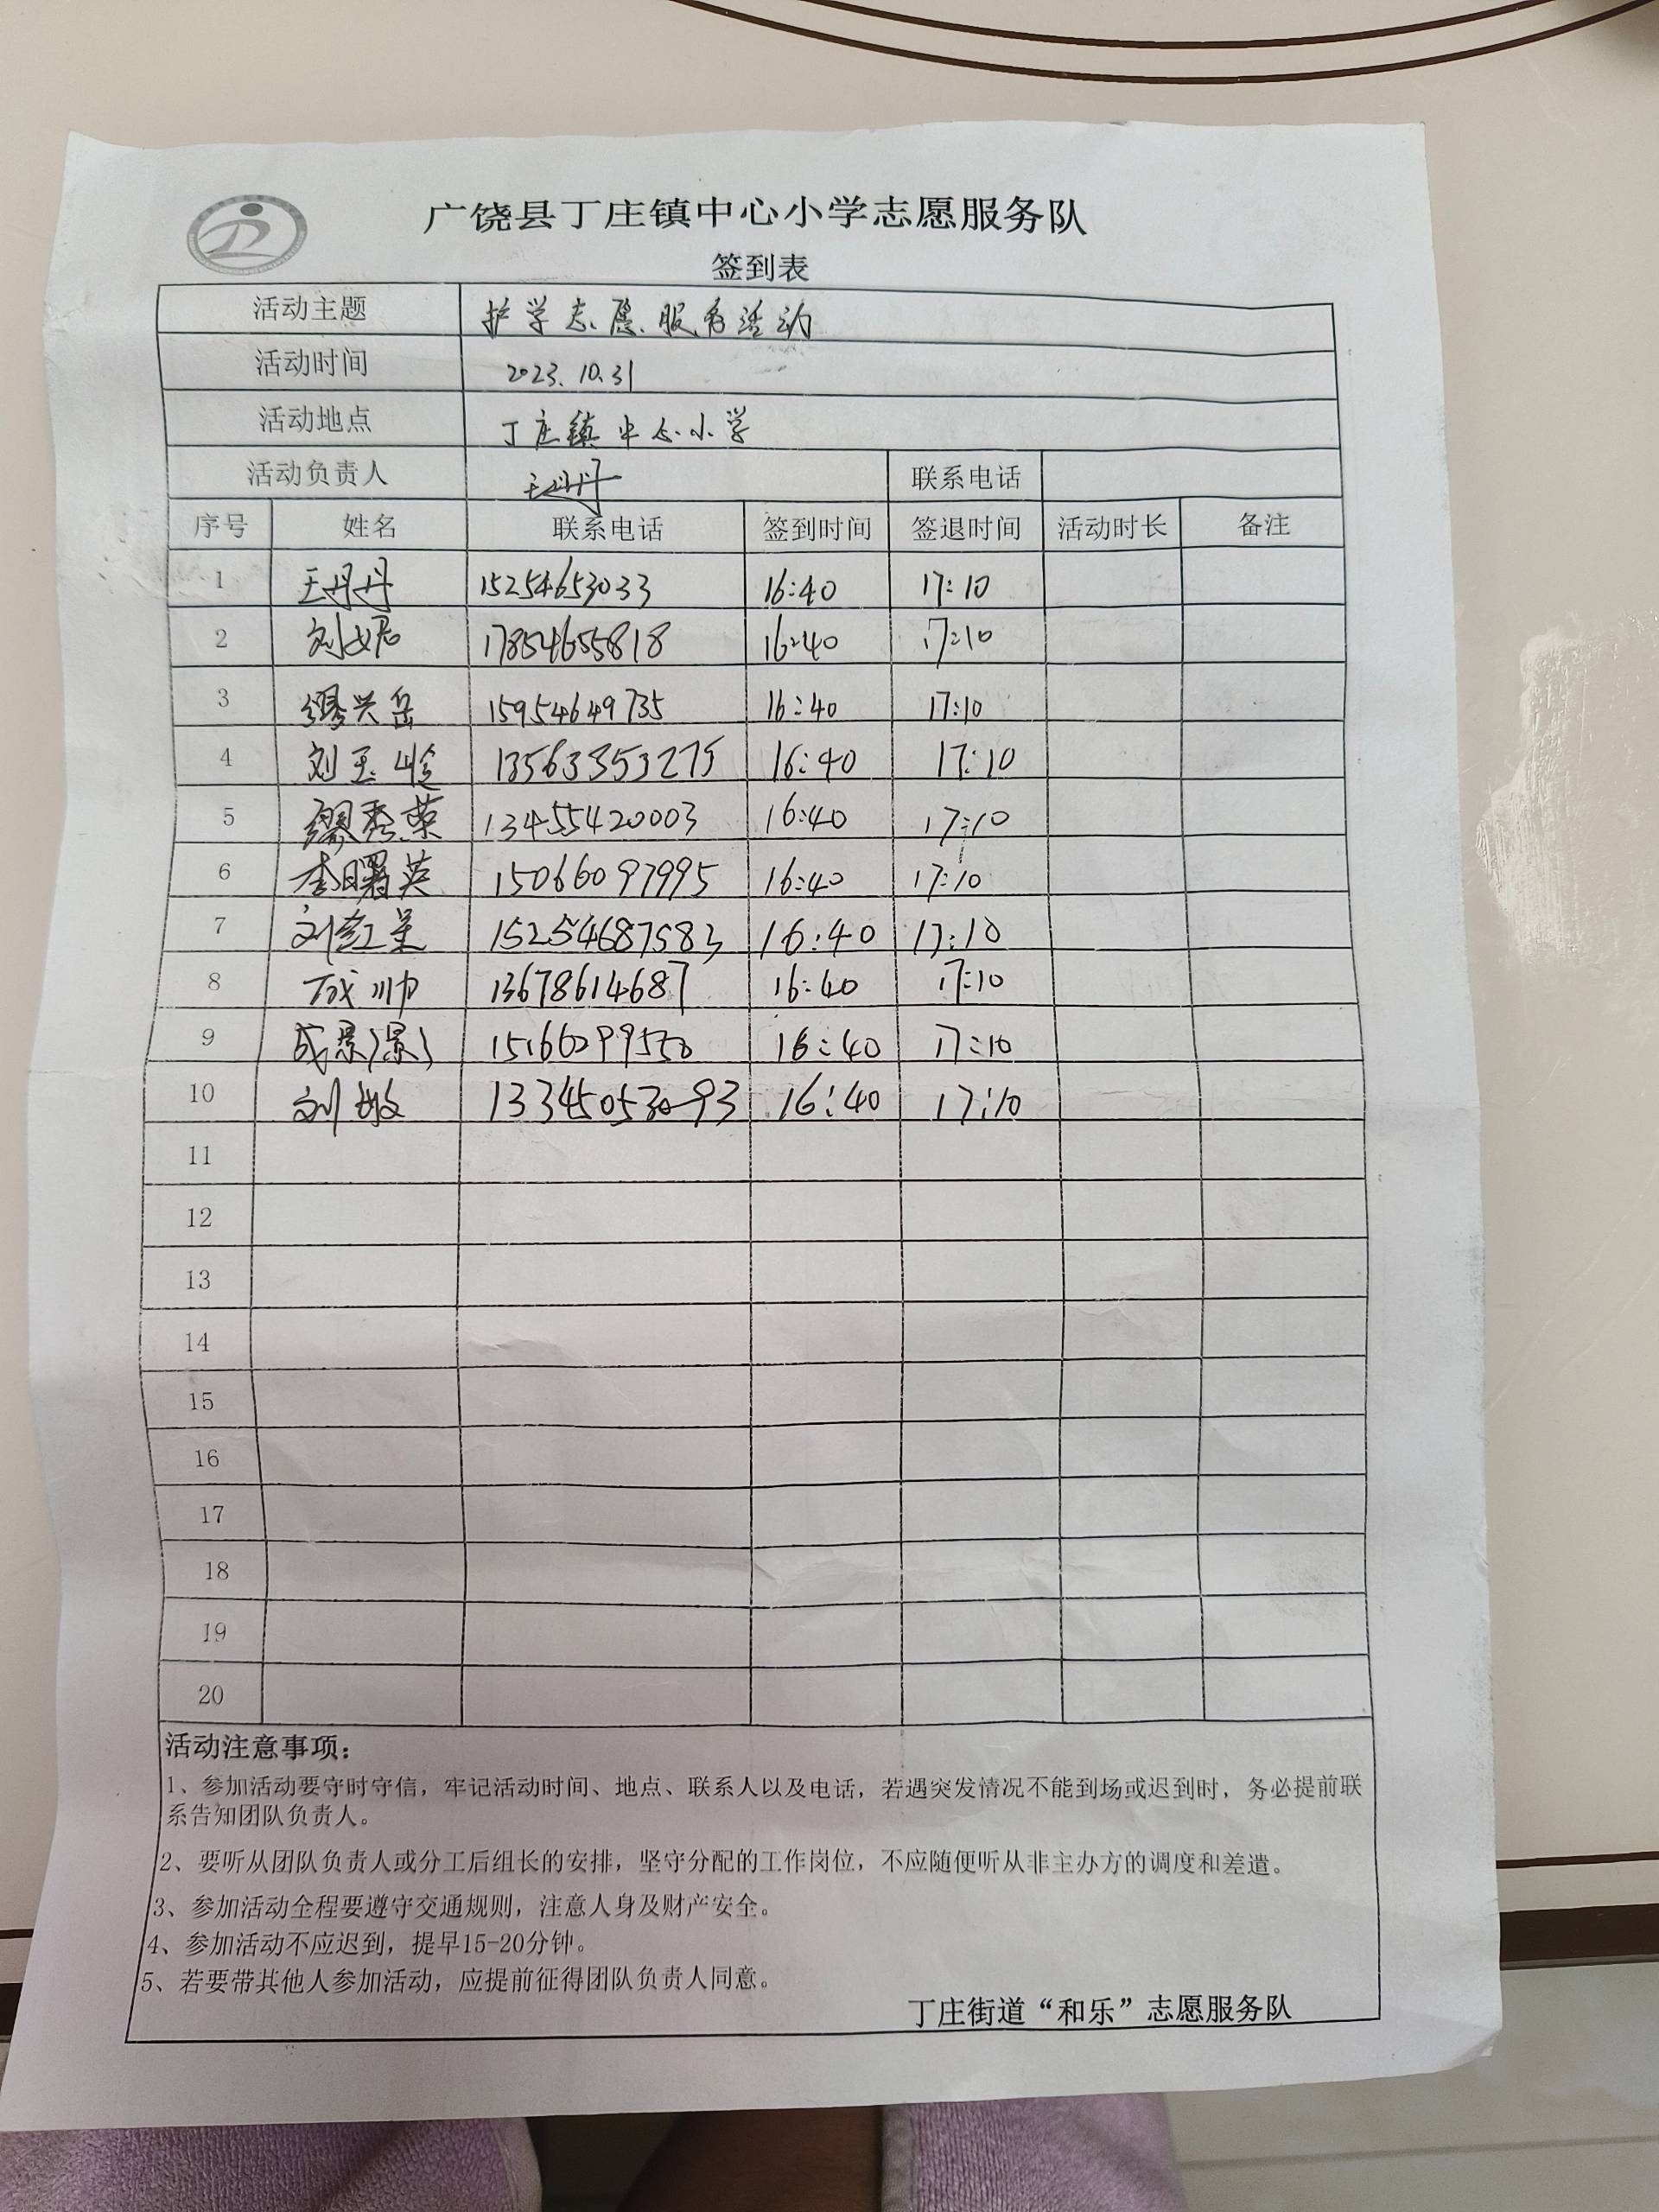 广饶县丁庄镇中心小学志愿服务队
签到表
活动主题 护学志愿服务活动
活动时间 2023.10.31
活动地点 丁庄镇中心小学
活动负责人 王丹丹 联系电话
序号 姓名 联系电话 签到时间 签退时间 活动时长 备注
1 王丹丹 15254653033 16:40 17:10
2 刘妮 17854655818 16:40 17:10
3 缪兴岳 15954649735 16:40 17:10
4 刘玉玲 13563353275 16:40 17:10
5 缪秀荣 13455420003 16:40 17:10
6 李曙英 15066097995 16:40 17:10
7 刘红 15254687583 16:40 17:10
8 成帅 13678614687 16:40 17:10
9 成景景 16:40 17:10
10 刘敏 13345053093 16:40 17:10
11
12
13
14
15
16
17
18
19
20
活动注意事项：
1、参加活动要守时守信，牢记活动时间、地点、联系人以及电话，若遇突发情况不能到场或迟到时，务必提前联
系告知团队负责人。
2、要听从团队负责人或分工后组长的安排，坚守分配的工作岗位，不应随便听从非主办方的调度和差遣。
3、参加活动全程要遵守交通规则，注意人身及财产安全。
4、参加活动不应迟到，提早15-20分钟。
5、若要带其他人参加活动，应提前征得团队负责人同意。
丁庄街道“和乐”志愿服务队